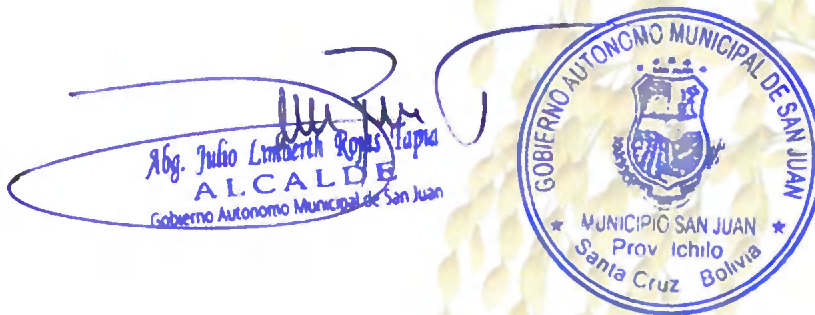 Abg. Julio Limberth Rojas Tapia
ALCALDE
Gobierno Autonomo Municipal de San Juan
GOBIERNO AUTONOMO MUNICIPAL DE SAN JUAN
MUNICIPIO SAN JUAN
Prov Ichilo
Santa Cruz Bolivia